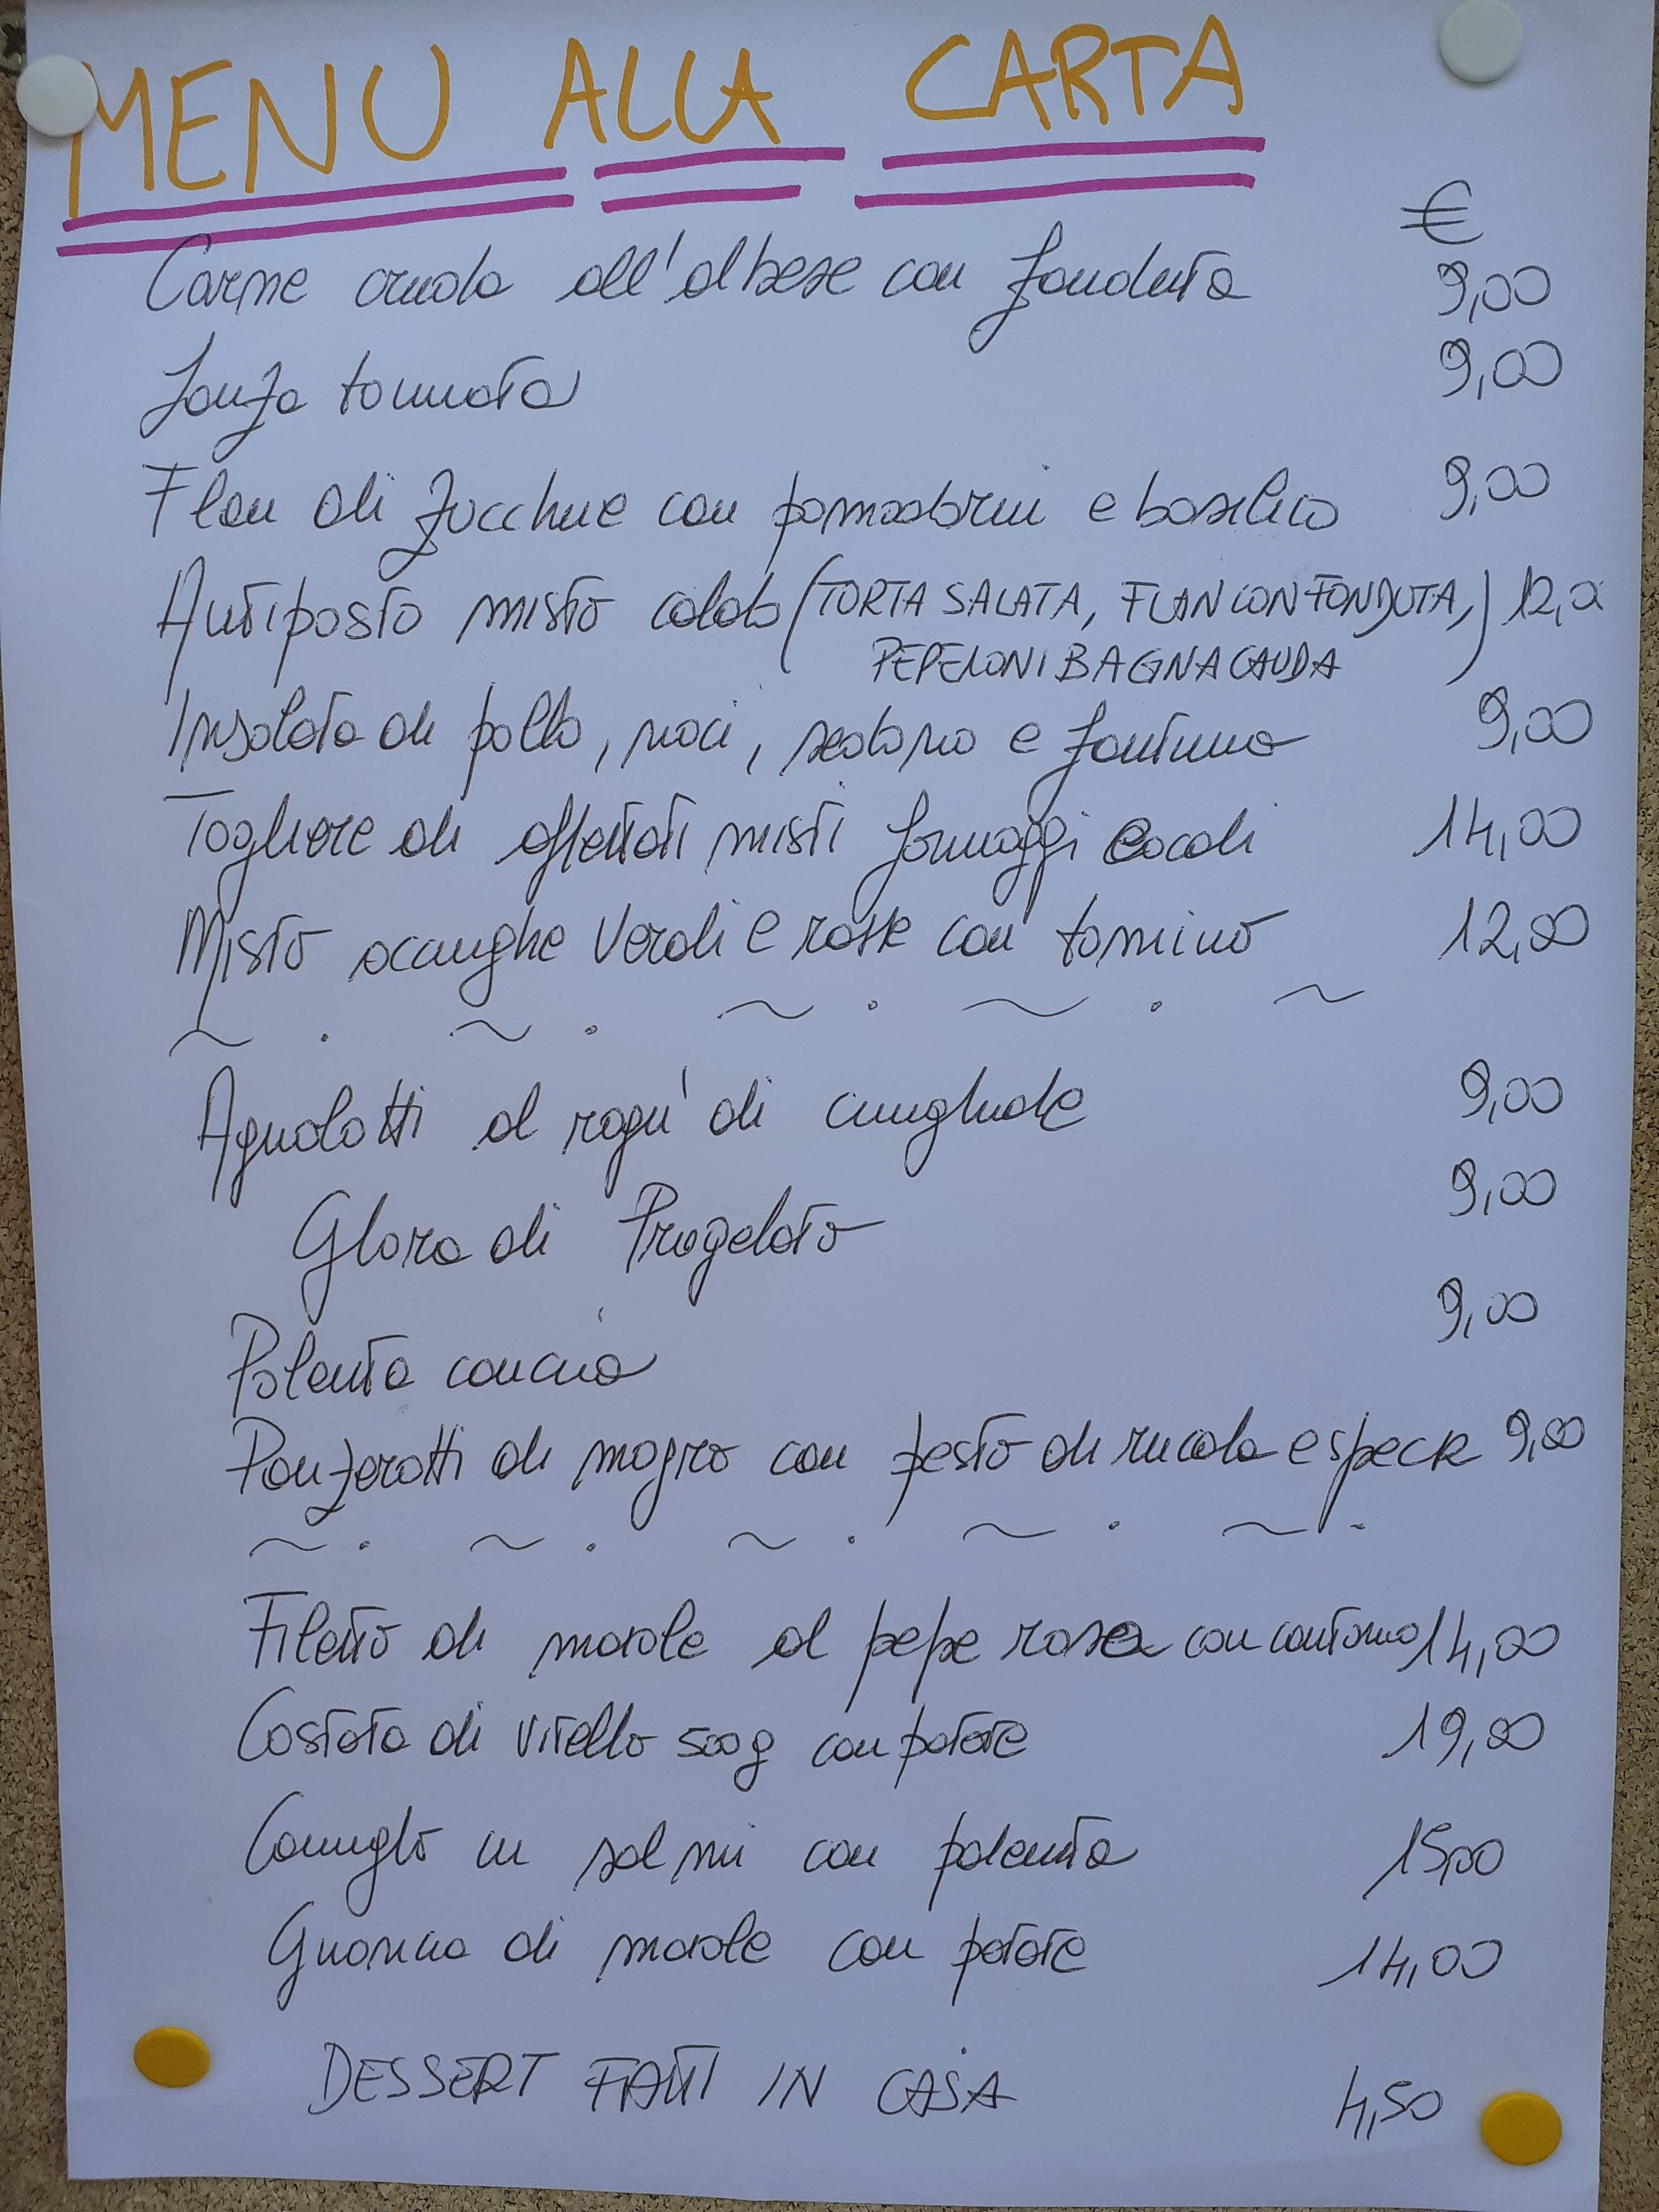 MENU ALLA CARTA
€
Carne cruda all'albese con fonduta 9,00
Lonza tonnata 9,00
Flan di zucchine con pomodorini e basilico 9,00
Antipasto misto caldo (TORTA SALATA, FLAN CON FONDUTA,) 12,0
PEPERONI BAGNA CAUDA
Insalata di pollo, noci, sedano e fontina 9,00
Tagliere di affettati misti formaggi locali 14,00
Misto acciughe verdi e rosse con tomino 12,00
Agnolotti al ragu' di cinghiale 9,00
di Pragelato 9,00
Polenta concia 9,00
Panzerotti di magro con pesto di rucola e speck 9,00
Filetto di maiale al pepe rosa con contorno 14,00
Costata di vitello 500g con patate 19,00
Coniglio in salmì con polenta 15,00
Guancia di maiale con patate 14,00
DESSERT FATTI IN CASA 4,50